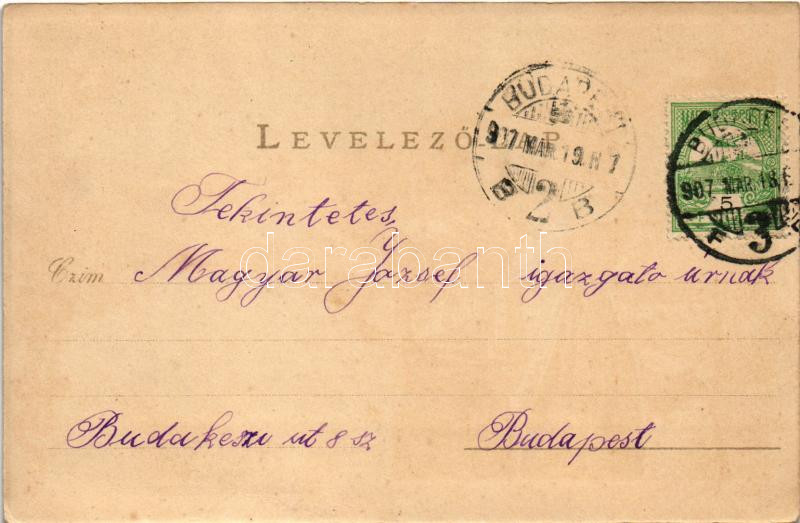 LEVELEZŐ-LAP
BUDAPEST
907 MÁR. 19. N 7
B 2 B
BUDAPE
907 MÁR. 18.
5
F 3
Tekintetes,
Czím Magyar József igazgato urnak
darabanth
Budakeszi ut 8 sz Budapest